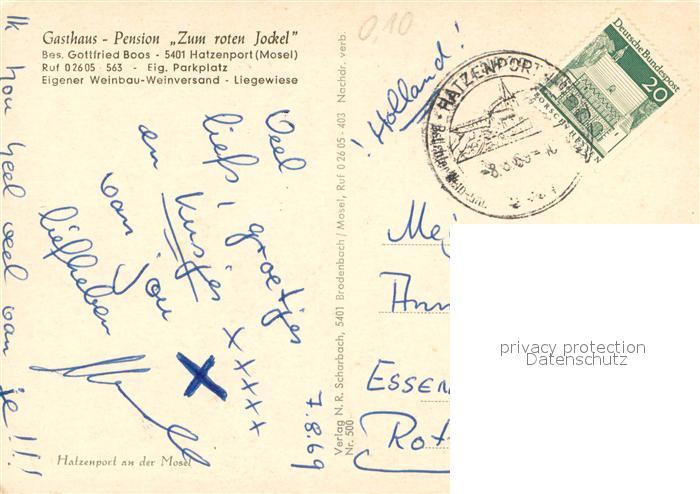 Gasthaus - Pension „Zum roten Jockel"
Bes. Gottfried Boos - 5401 Hatzenport (Mosel)
Ruf 02605 - 563 - Eig. Parkplatz
Eigener Weinbau-Weinversand - Liegewiese
Ik hou heel veel van je!!!
Veel
liefs, groetjes
en kusjes xxxx
van jou
liefhebber
X
7.8.69
Hatzenport an der Mosel
Verlag N. R. Scharbach, 5401 Brodenbach/Mosel, Ruf 02605 - 403 Nachdr. verb.
Nr. 500
0,10
! Holland!
HATZENPORT
Deutsche Bundespost
20
LORSCH/HESSEN
Mej
Ann
ESSEN
Rot
privacy protection
Datenschutz